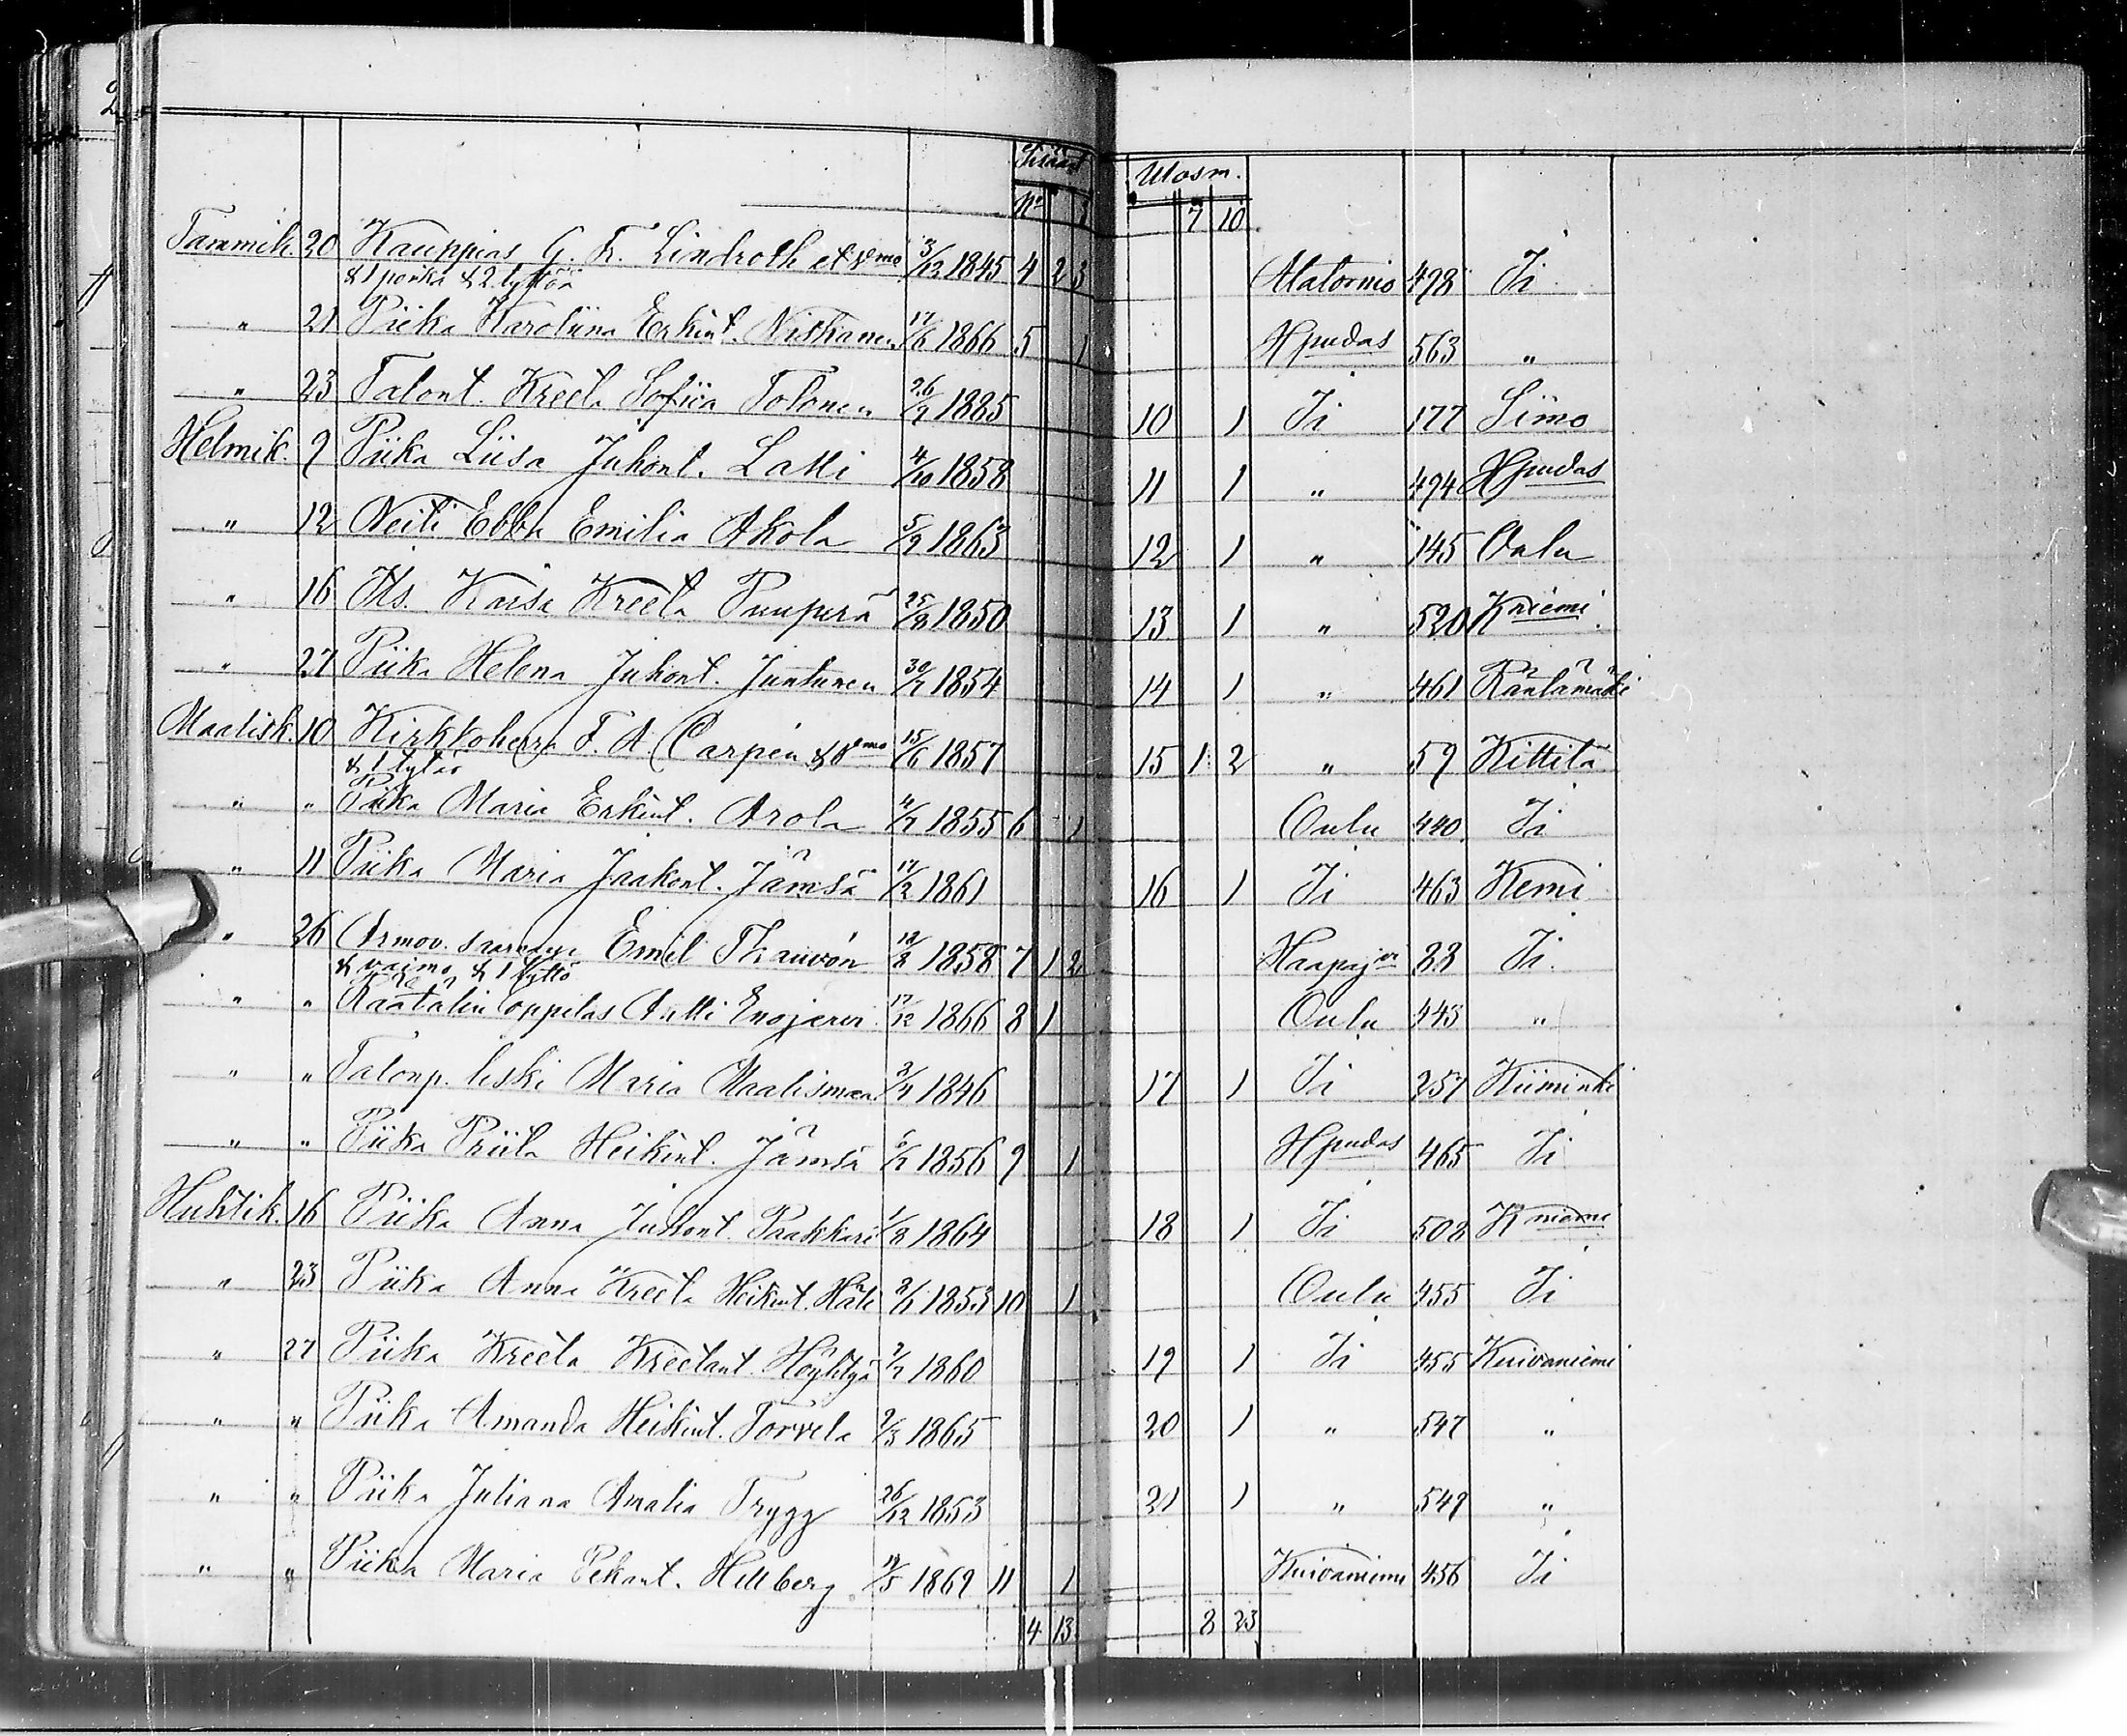 Ulosm.
No 7 10
Tammik. 20 Kauppias G. F. Lindroth et vmo 3/12 1845 4 2 3 Alatornio 498 Ii
& 1 poika & 2 tyttöä
" 21 Piika Karoliina Erkint. Niskanen 17/6 1866 5 1 Hpudas 563 "
" 23 Talont. Kreeta Sofiia Tolonen 26/2 1885 10 1 Ii 177 Simo
Helmik. 9 Piika Liisa Juhont. Latti 4/10 1858 11 1 " 494 Hpudas
" 12 Neiti Ebba Emilia Akola 5/2 1863 12 1 " 145 Oulu
" 16 Its. Kaisa Kreeta Puuperä 25/8 1850 13 1 " 520 Kniemi
" 27 Piika Helena Juhont. Juntunen 30/7 1854 14 1 " 461 Rantamäki
Maalisk. 10 Kirkkoherra F. A. Carpén & vmo 15/6 1857 15 1 2 " 59 Kittilä
& 1 tytär
" " Piika Maria Erkint. Arola 4/7 1855 6 1 Oulu 440 Ii
" 11 Piika Maria Jaakont. Jämsä 17/2 1861 16 1 Ii 463 Kemi
" 26 Armov. saarnaaja Emil Thauvón 18/8 1858 7 1 2 Haapajvi 88 Ii
& vaimo & 1 tyttö
" " Räätälin oppilas Antti Enojärvi 17/12 1866 8 1 Oulu 443 "
" " Talonp. leski Maria Maalismaa 1846 17 1 Ii 257 Kiiminki
" " Piika Priita Heikint. Jämsä 6/7 1856 9 1 Hpudas 465 Ii
Huhtik. 16 Piika Anna Juhont. Paakkari 1/8 1864 18 1 Ii 508 Kniemi
" 23 Piika Anna Kreeta Heikint. Häti 1853 10 1 Oulu 455 Ii
" 27 Piika Kreeta Kreetant. Höyhtyä 2/7 1860 19 1 Ii 455 Kuivaniemi
" " Piika Amanda Heikint. Torvela 2/3 1865 20 1 " 547 "
" " Piika Juliana Amalia Trygg 26/12 1853 21 1 " 549 "
" " Piika Maria Pekant. Hellberg 19/5 1869 11 1 Kuivaniemi 456 Ii
4 13 8 23